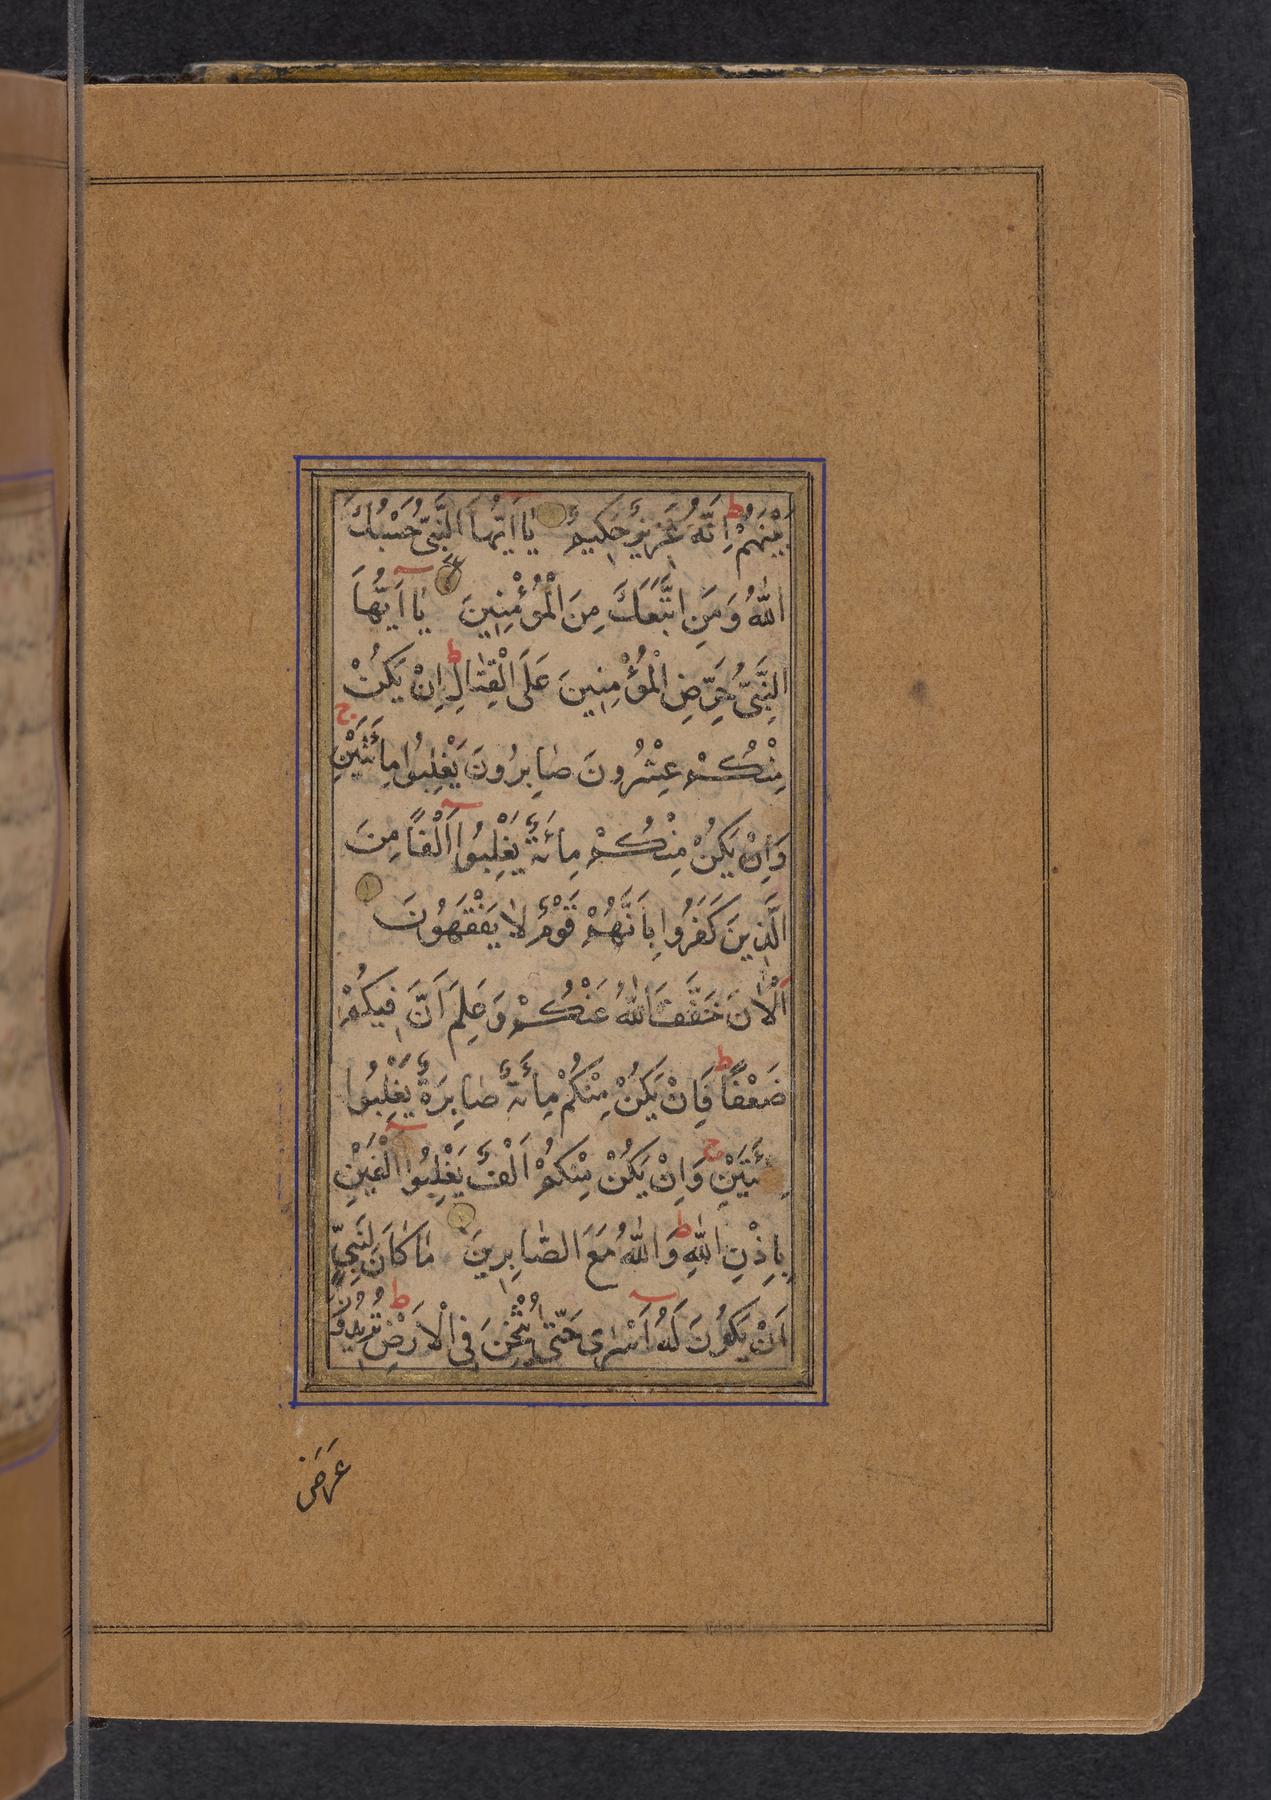 بَيْنَهُمْ ط اِنَّهُ عَزِيزٌ حَكِيمٌ يٰا اَيُّهَا النَّبِىُّ حَسْبُكَ
اللّٰهُ وَمَنِ اتَّبَعَكَ مِنَ الْمُؤْمِنِينَ يٰا اَيُّهَا
النَّبِىُّ حَرِّضِ الْمُؤْمِنِينَ عَلَى الْقِتٰالِ ط اِنْ يَكُنْ
مِنْكُمْ عِشْرُونَ صٰابِرُونَ يَغْلِبُوا مِائَتَيْنِ ج
وَاِنْ يَكُنْ مِنْكُمْ مِائَةٌ يَغْلِبُوا اَلْفًا مِنَ
الَّذِينَ كَفَرُوا بِاَنَّهُمْ قَوْمٌ لٰا يَفْقَهُونَ
اَلْاٰنَ خَفَّفَ اللّٰهُ عَنْكُمْ وَعَلِمَ اَنَّ فِيكُمْ
ضَعْفًا ط فَاِنْ يَكُنْ مِنْكُمْ مِائَةٌ صٰابِرَةٌ يَغْلِبُوا
مِئَتَيْنِ ج وَاِنْ يَكُنْ مِنْكُمْ اَلْفٌ يَغْلِبُوا اَلْفَيْنِ
بِاِذْنِ اللّٰهِ ط وَاللّٰهُ مَعَ الصّٰابِرِينَ مٰا كٰانَ لِنَبِىٍّ
اَنْ يَكُونَ لَهُ اَسْرٰى حَتّٰى يُثْخِنَ فِى الْاَرْضِ ط تُرِيدُونَ
عَرَضَ